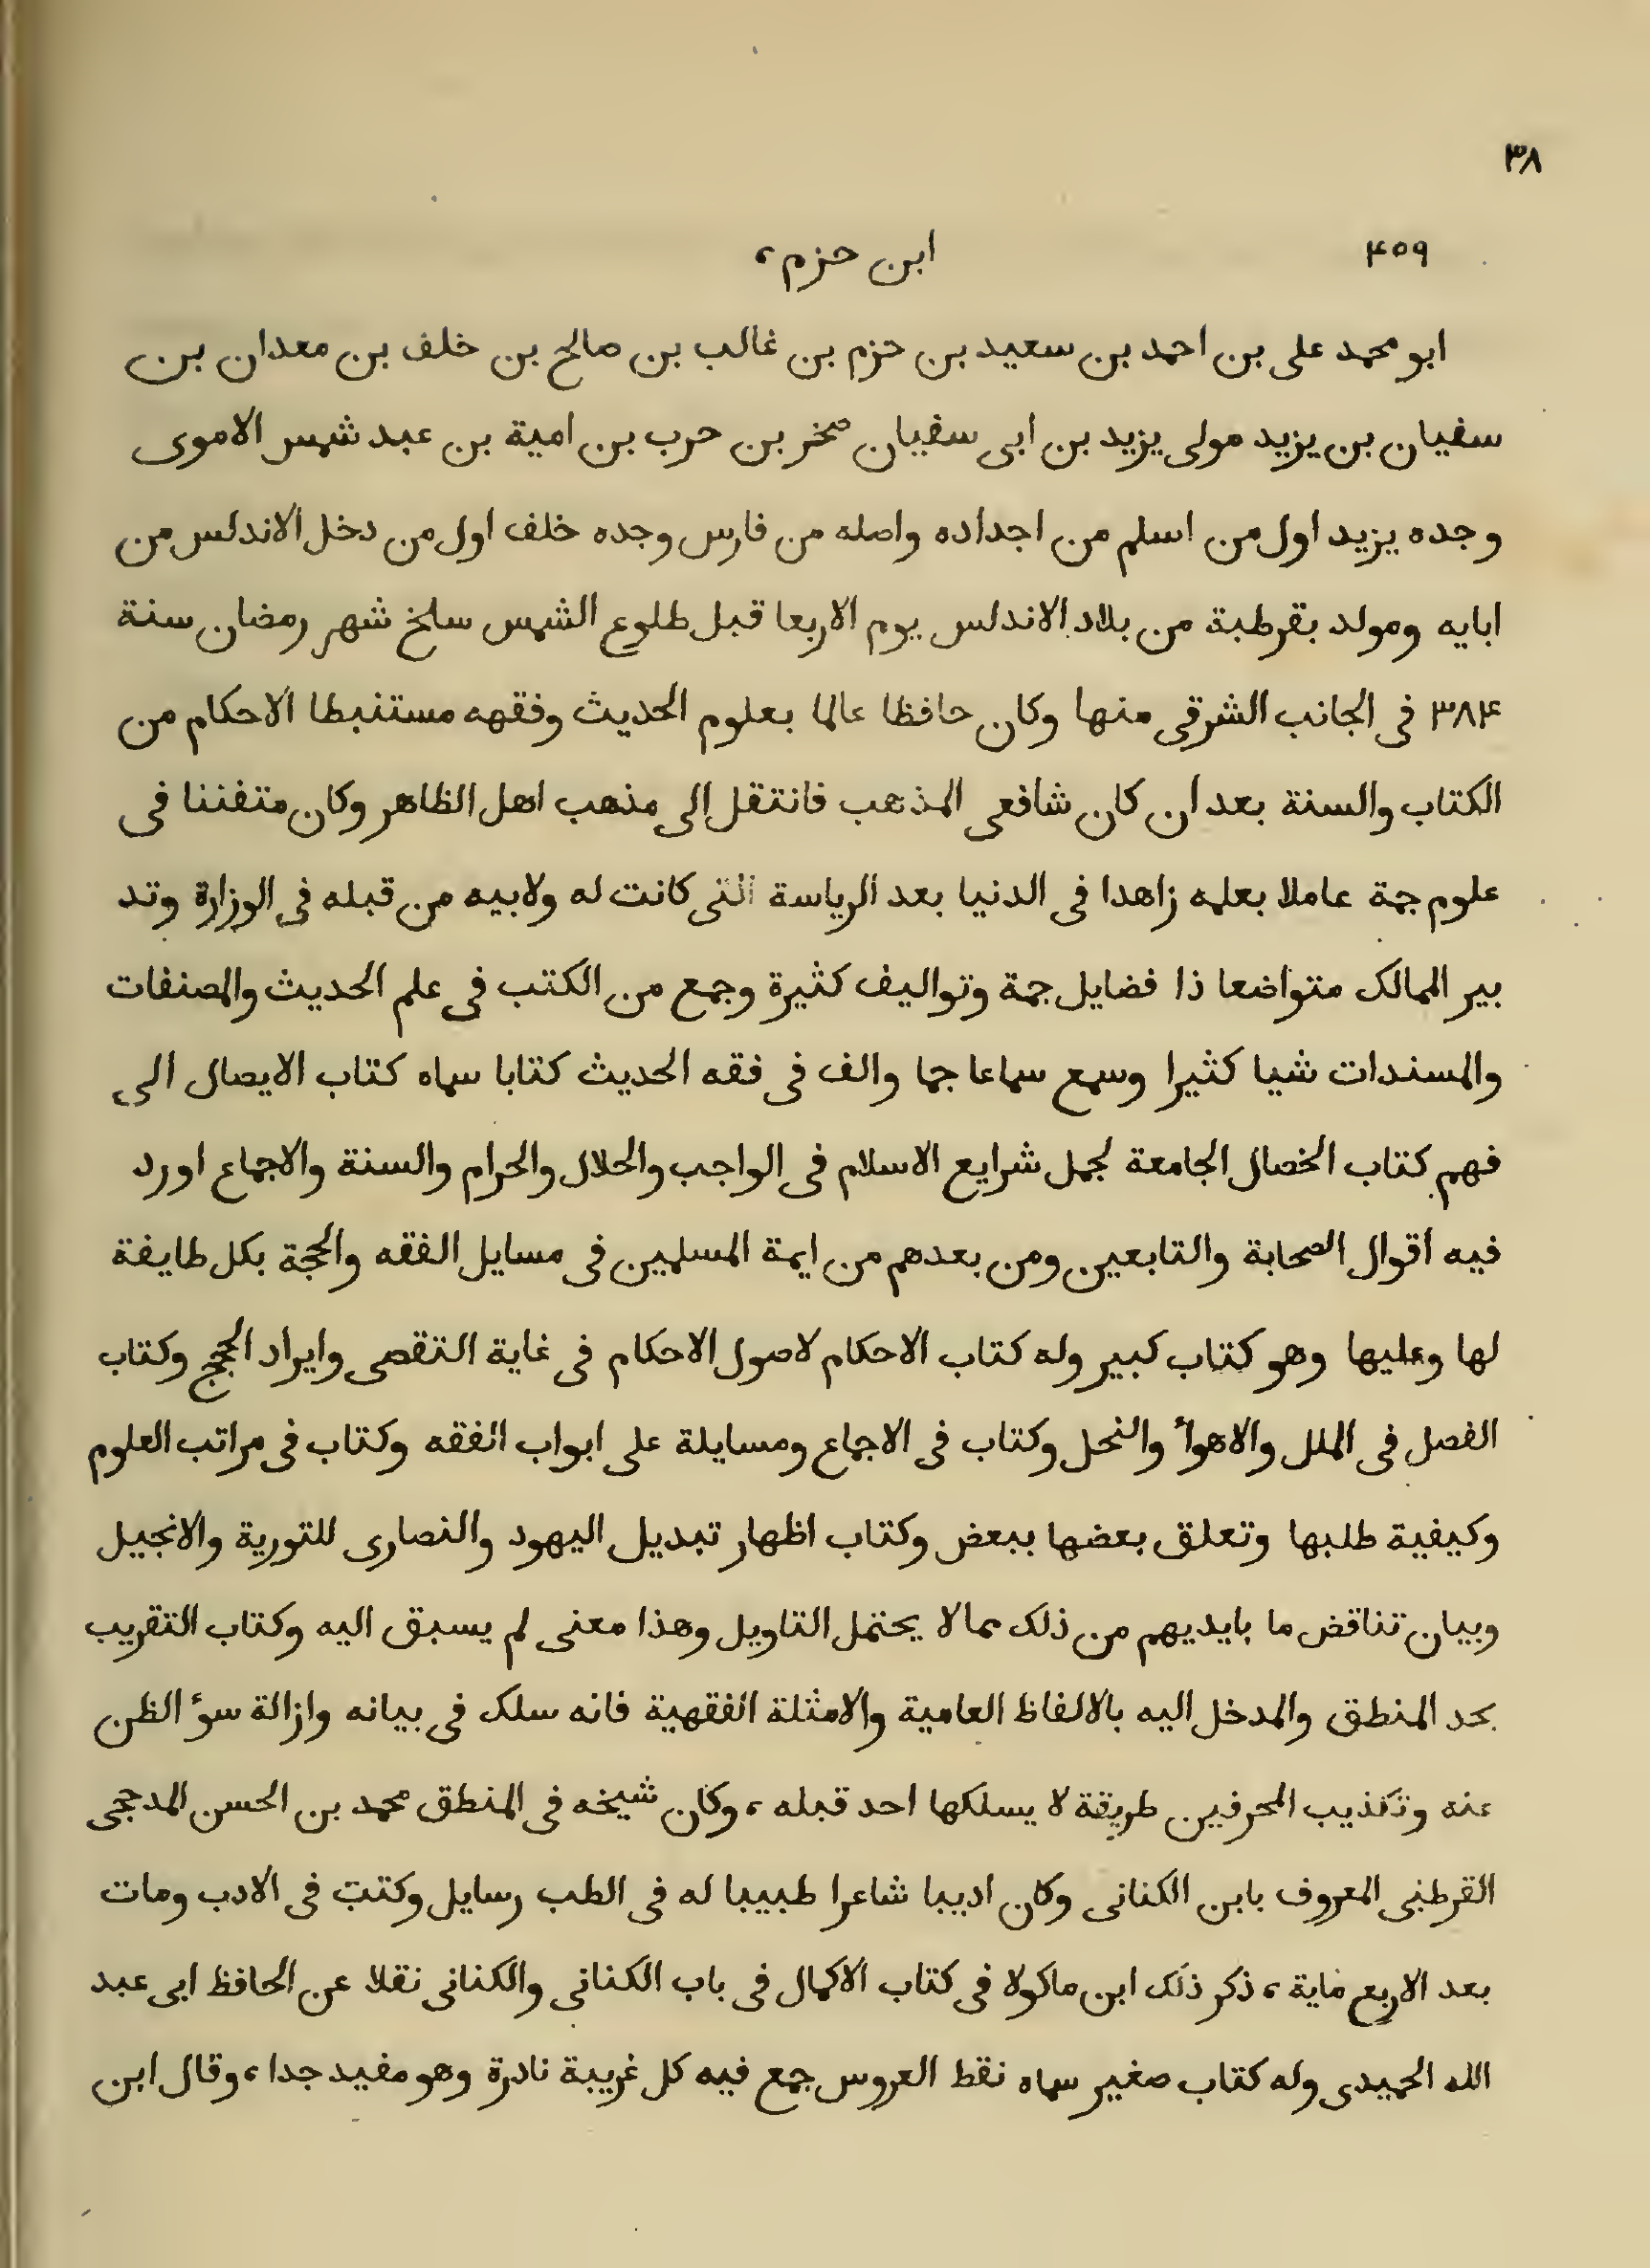 ٣٨
٤٥٩ ابن حزم،
ابو محمد على بن احمد بن سعيد بن حزم بن غالب بن صالح بن خلف بن معدان بن
سفيان بن يزيد مولى يزيد بن ابى سفيان صخر بن حرب بن امية بن عبد شمس الاموى
وجده يزيد اول من اسلم من اجداده واصله من فارس وجده خلف اول من دخل الاندلس من
ابايه ومولد بقرطبة من بلاد الاندلس يوم الاربعا قبل طلوع الشمس سلخ شهر رمضان سنة
٣٨٤ فى الجانب الشرقى منها وكان حافظا عالما بعلوم الحديث وفقهه مستنبطا الاحكام من
الكتاب والسنة بعد ان كان شافعى المذهب فانتقل إلى مذهب اهل الظاهر وكان متفننا فى
علوم جمة عاملا بعلمه زاهدا فى الدنيا بعد الرياسة التى كانت له ولابيه من قبله فى الوزارة وتد
بير الممالك متواضعا ذا فضايل جمة وتواليف كثيرة وجمع من الكتب فى علم الحديث والمصنفات
والمسندات شيا كثيرا وسمع سماعا جما والف فى فقه الحديث كتابا سماه كتاب الايصال الى
فهم كتاب الخصال الجامعة لجمل شرايع الاسلام فى الواجب والحلال والحرام والسنة والاجماع اورد
فيه اقوال الصحابة والتابعين ومن بعدهم من ايمة المسلمين فى مسايل الفقه والحجة بكل طايفة
لها وعليها وهو كتاب كبير وله كتاب الاحكام لاصول الاحكام فى غاية التقصى وايراد الحجج وكتاب
الفصل فى الملل والاهوأ والنحل وكتاب فى الاجماع ومسايلة على ابواب الفقه وكتاب فى مراتب العلوم
وكيفية طلبها وتعلق بعضها ببعض وكتاب اظهار تبديل اليهود والنصارى للتورية والانجيل
وبيان تناقض ما بايديهم من ذلك مما لا يحتمل التاويل وهذا معنى لم يسبق اليه وكتاب التقريب
بحد المنطق والمدخل اليه بالالفاظ العامية والامثلة الفقهية فانه سلك فى بيانه وازالة سوٴ الظن
عنه وتكذيب المحرفين طريقة لا يسلكها احد قبله، وكان شيخه فى المنطق محمد بن الحسن المدججى
القرطنى المعروف بابن الكنانى وكان اديبا شاعرا طبيبا له فى الطب رسايل وكتب فى الادب ومات
بعد الاربع ماية، ذكر ذلك ابن ماكولا فى كتاب الاكمال فى باب الكنانى والكنانى نقلا عن الحافظ ابى عبد
الله الحميدى وله كتاب صغير سماه نقط العروس جمع فيه كل غريبة نادرة وهو مفيد جدا، وقال ابن